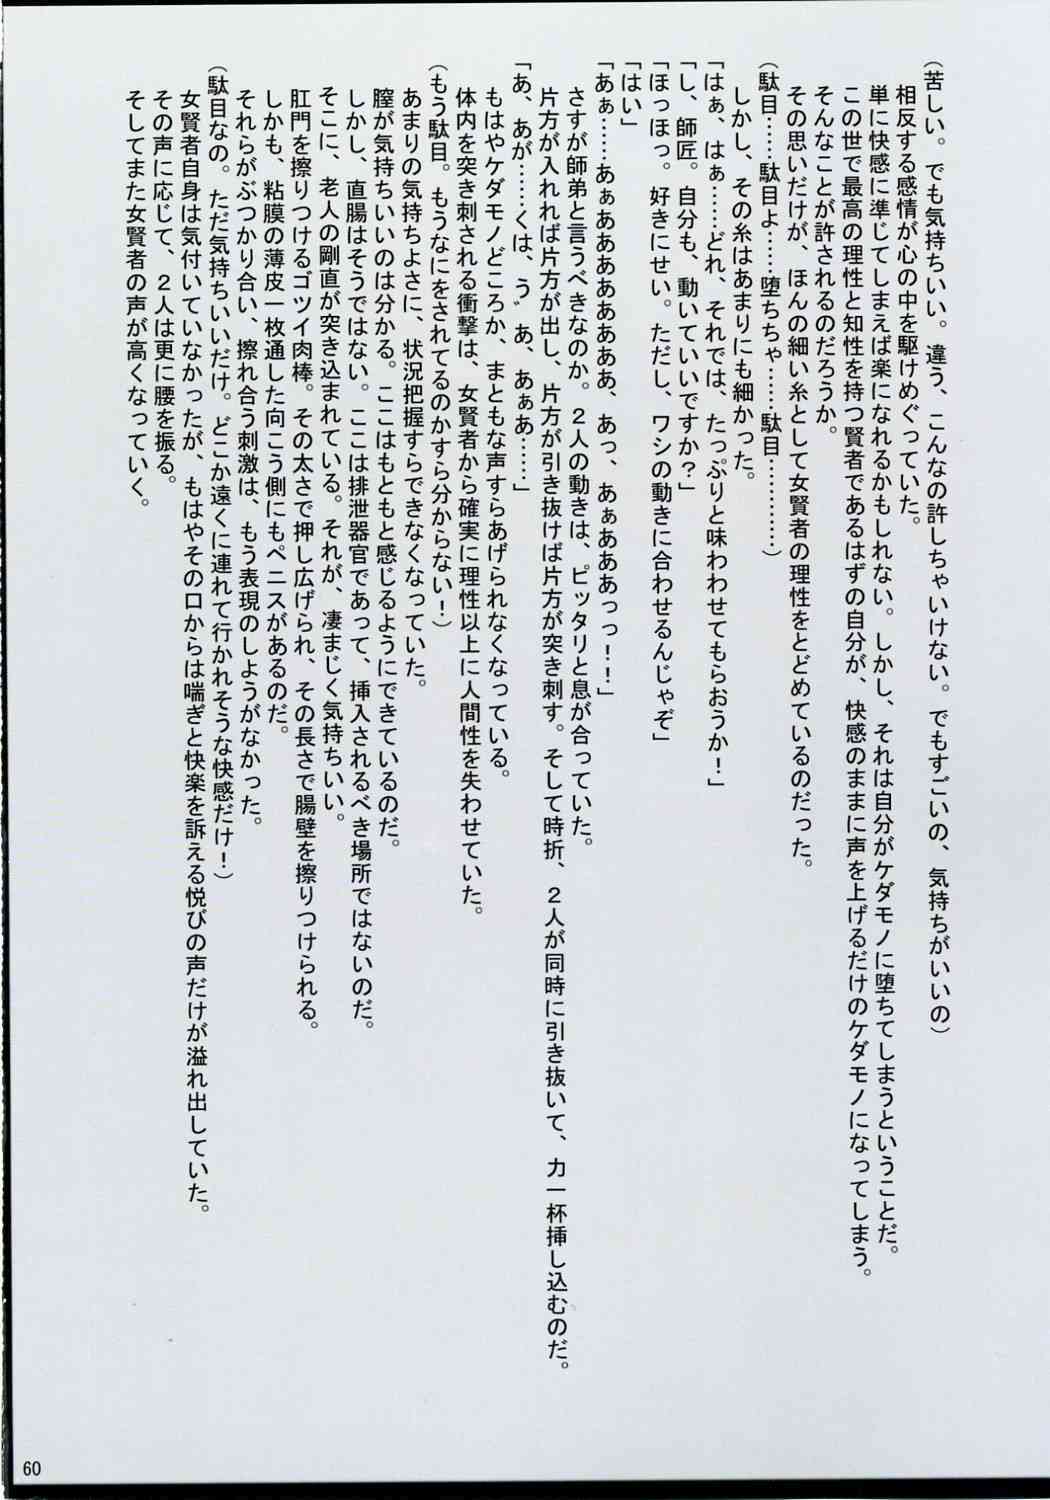 (苦しい。でも気持ちいい。違う、こんなの許しちゃいけない。でもすごいの、気持ちがいいの)
相反する感情が心の中を駆けめぐっていた。
単に快感に準じてしまえば楽になれるかもしれない。しかし、それは自分がケダモノに堕ちてしまうということだ。
この世で最高の理性と知性を持つ賢者であるはずの自分が、快感のままに声を上げるだけのケダモノになってしまう。
そんなことが許されるのだろうか。
その思いだけが、ほんの細い糸として女賢者の理性をとどめているのだった。
(駄目……駄目よ……堕ちちゃ……駄目…………)
しかし、その糸はあまりにも細かった。
「はぁ、はぁ……どれ、それでは、たっぷりと味わわせてもらおうか！」
「し、師匠。自分も、動いていいですか？」
「ほっほっ。好きにせい。ただし、ワシの動きに合わせるんじゃぞ」
「はい」
「あぁ……あぁああああああああ、あっ、あぁあああっっ！！」
さすが師弟と言うべきなのか。２人の動きは、ピッタリと息が合っていた。
片方が入れれば片方が出し、片方が引き抜けば片方が突き刺す。そして時折、２人が同時に引き抜いて、力一杯挿し込むのだ。
「あ、あが……くは、う゛あ、あぁあ……」
もはやケダモノどころか、まともな声すらあげられなくなっている。
体内を突き刺される衝撃は、女賢者から確実に理性以上に人間性を失わせていた。
(もう駄目。もうなにをされてるのかすら分からない！)
あまりの気持ちよさに、状況把握すらできなくなっていた。
膣が気持ちいいのは分かる。ここはもともと感じるようにできているのだ。
しかし、直腸はそうではない。ここは排泄器官であって、挿入されるべき場所ではないのだ。
そこに、老人の剛直が突き込まれている。それが、凄まじく気持ちいい。
肛門を擦りつけるゴツイ肉棒。その太さで押し広げられ、その長さで腸壁を擦りつけられる。
しかも、粘膜の薄皮一枚通した向こう側にもペニスがあるのだ。
それらがぶつかり合い、擦れ合う刺激は、もう表現のしようがなかった。
(駄目なの。ただ気持ちいいだけ。どこか遠くに連れて行かれそうな快感だけ！)
女賢者自身は気付いていなかったが、もはやその口からは喘ぎと快楽を訴える悦びの声だけが溢れ出していた。
その声に応じて、２人は更に腰を振る。
そしてまた女賢者の声が高くなっていく。
60